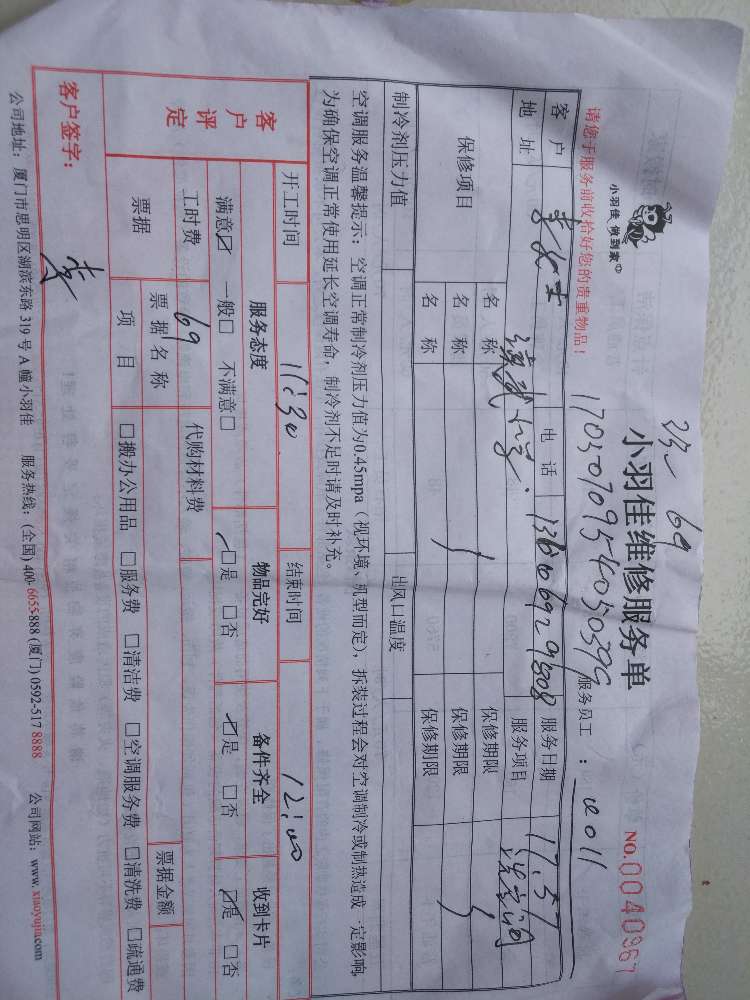 小羽佳 做到家
请您于服务前收拾好您的贵重物品！
69
小羽佳维修服务单
NO.0040967
服务员工：
客户 电话 服务日期 17.5.7
地址 服务项目
保修项目 名称 保修期限
名称 保修期限
名称 保修期限
制冷剂压力值 出风口温度
空调服务温馨提示：空调正常制冷剂压力值为0.45mpa（视环境、机型而定），拆装过程会对空调制冷或制热造成一定影响，
为确保空调正常使用延长空调寿命，制冷剂不足时请及时补充。
开工时间 11:30 结束时间 12:00
客户评定 服务态度 物品完好 备件齐全 收到卡片
满意☑ 一般□ 不满意□ ☑是 □否 ☑是 □否 ☑是 □否
工时费 69 代购材料费
票据 票据名称 票据金额
项目 □搬办公用品 □服务费 □清洁费 □空调服务费 □清洗费 □疏通费
客户签字：
公司地址：厦门市思明区湖滨东路319号A幢小羽佳 服务热线：(全国) 400-6655-888 (厦门) 0592-517 8888 公司网站：www.xiaoyujia.com